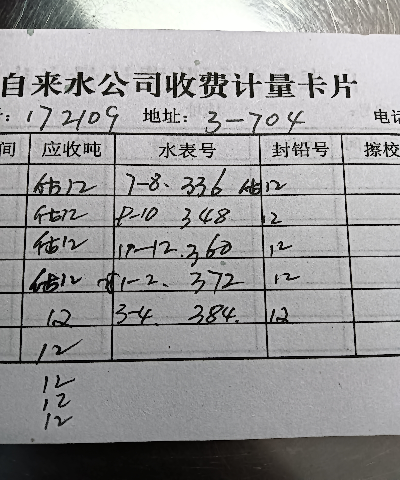 自来水公司收费计量卡片
号: 172109 地址: 3-704 电话
间 应收吨 水表号 封铅号 擦校
估12 7-8. 336 估12
估12 9-10 348 12
估12 11-12. 360 12
估12 1-2. 372 12
12 3-4. 384. 12
12
12
12
12